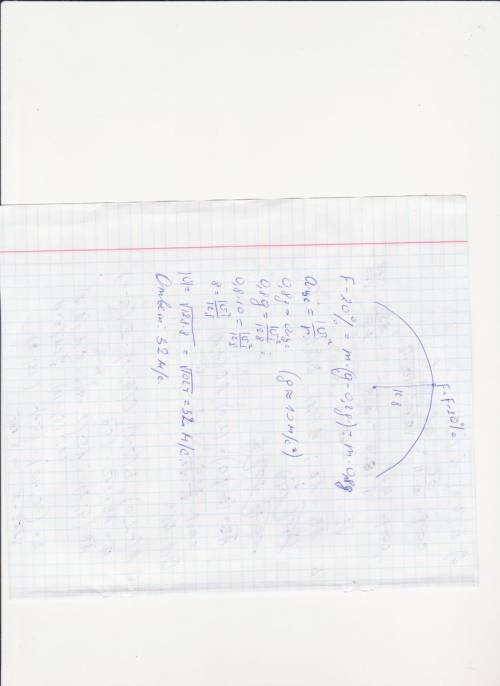 F-20% =
128
F-20% = m·(g-0,2g) = m·0,8g
aцс = |V|²/r
0,8g = aцс (g ≈ 10 м/с²)
0,8g = |V|²/128 ;
0,8·10 = |V|²/128
8 = |V|²/128
|V| = √128·8 = √1024 = 32 м/с.
Ответ: 32 м/с.